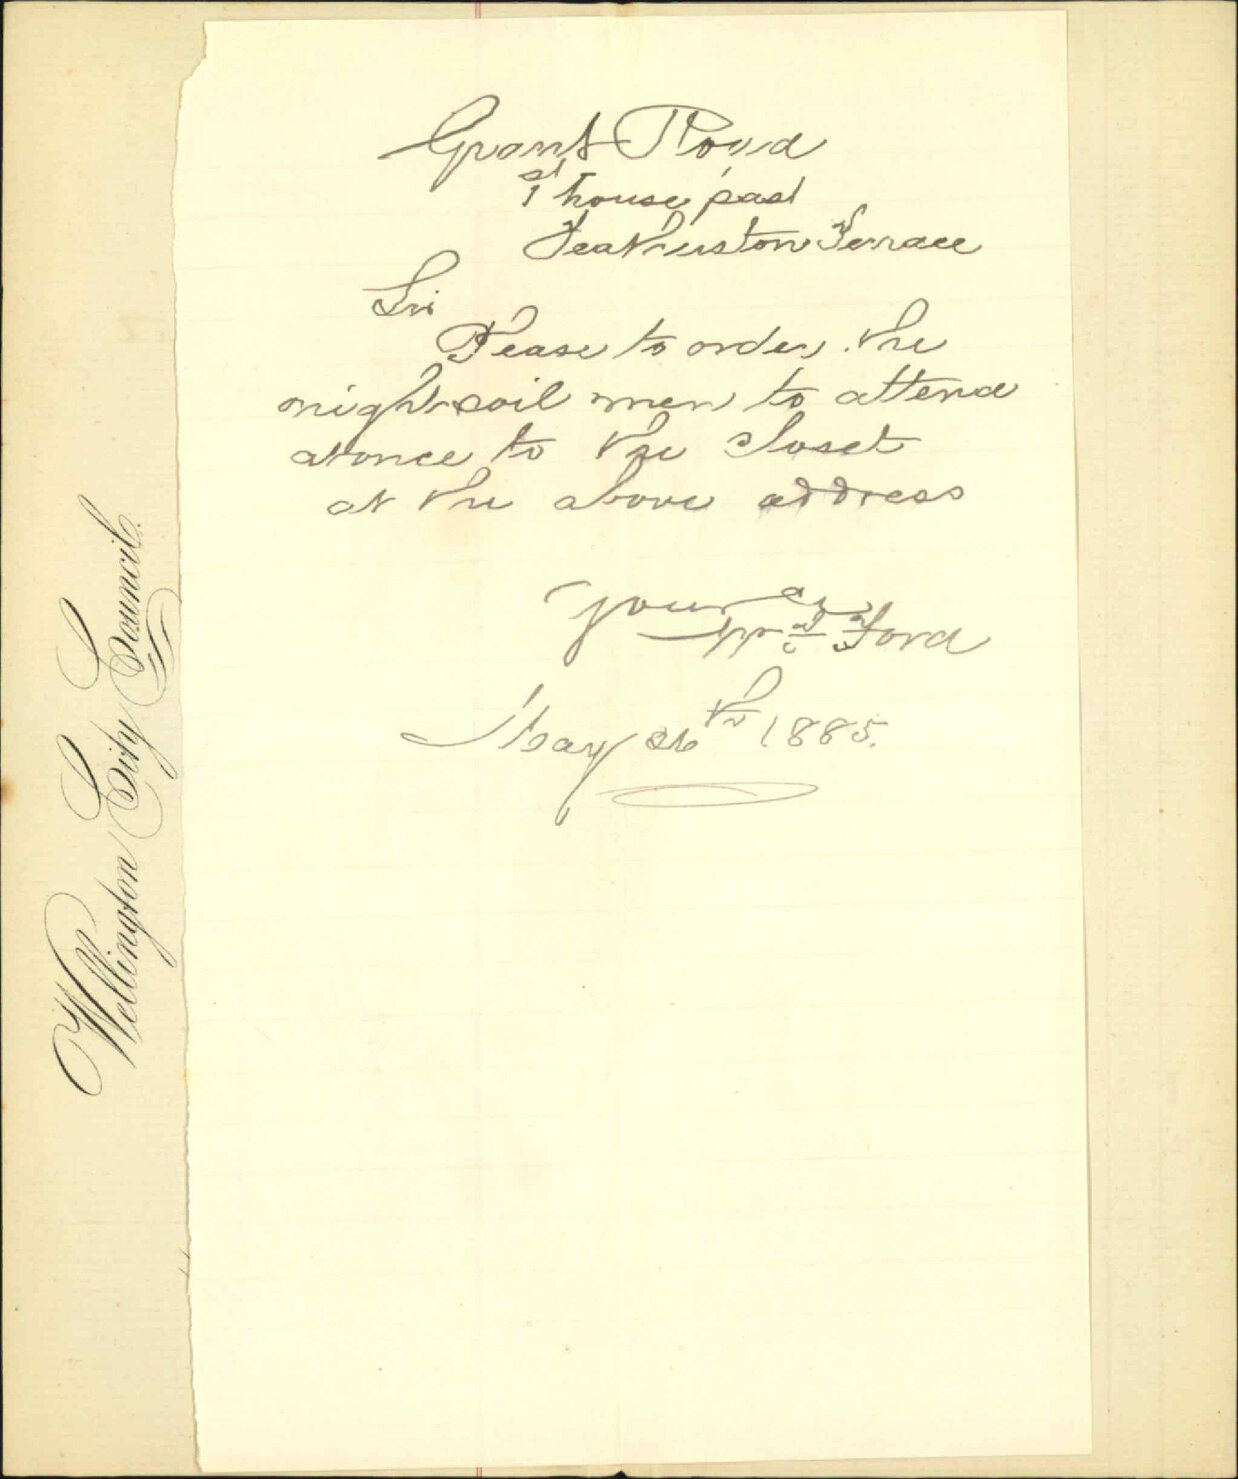 Grant Road
1st house past
Featherston Terrace
Sir
Please to order the
nightsoil men to attend
at once to the closet
at the above address
Yours &c
Wm Ford
May 26th 1885.
Wellington City Council.